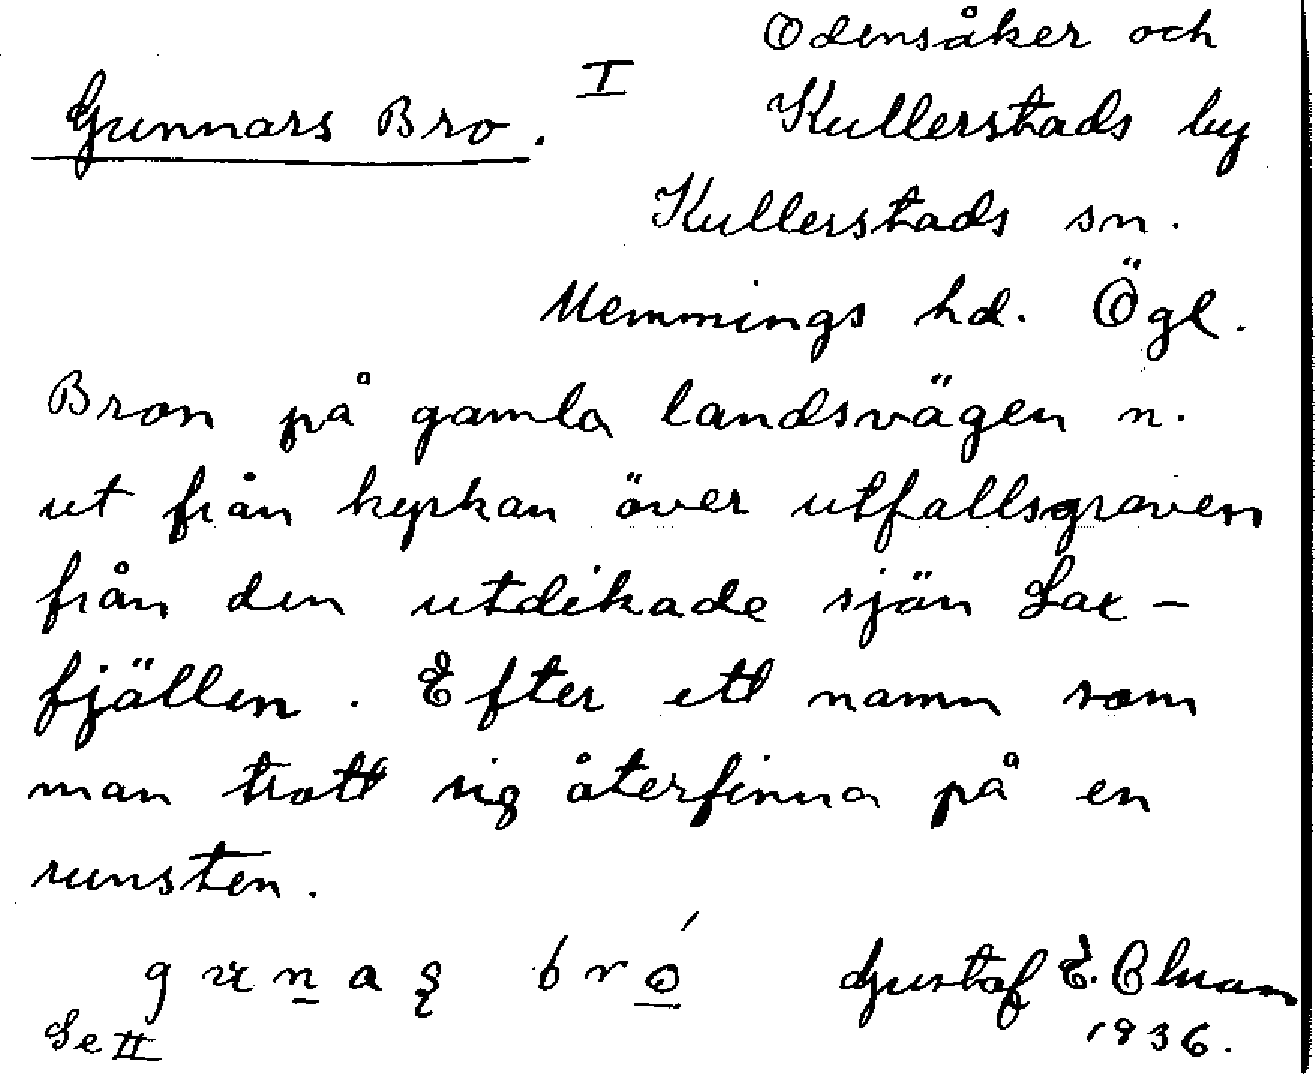 Gunnars Bro. I
Odensåker och
Kullerstads by
Kullerstads sn.
Memmings hd. Ögl.
Bron på gamla landsvägen n.
ut från kyrkan över utfallsgraven
från den utdikade sjön Lax-
fjällen. Efter ett namn som
man trott sig återfinna på en
runsten.
gunaş bró
Gustaf E.
1936.
Se II